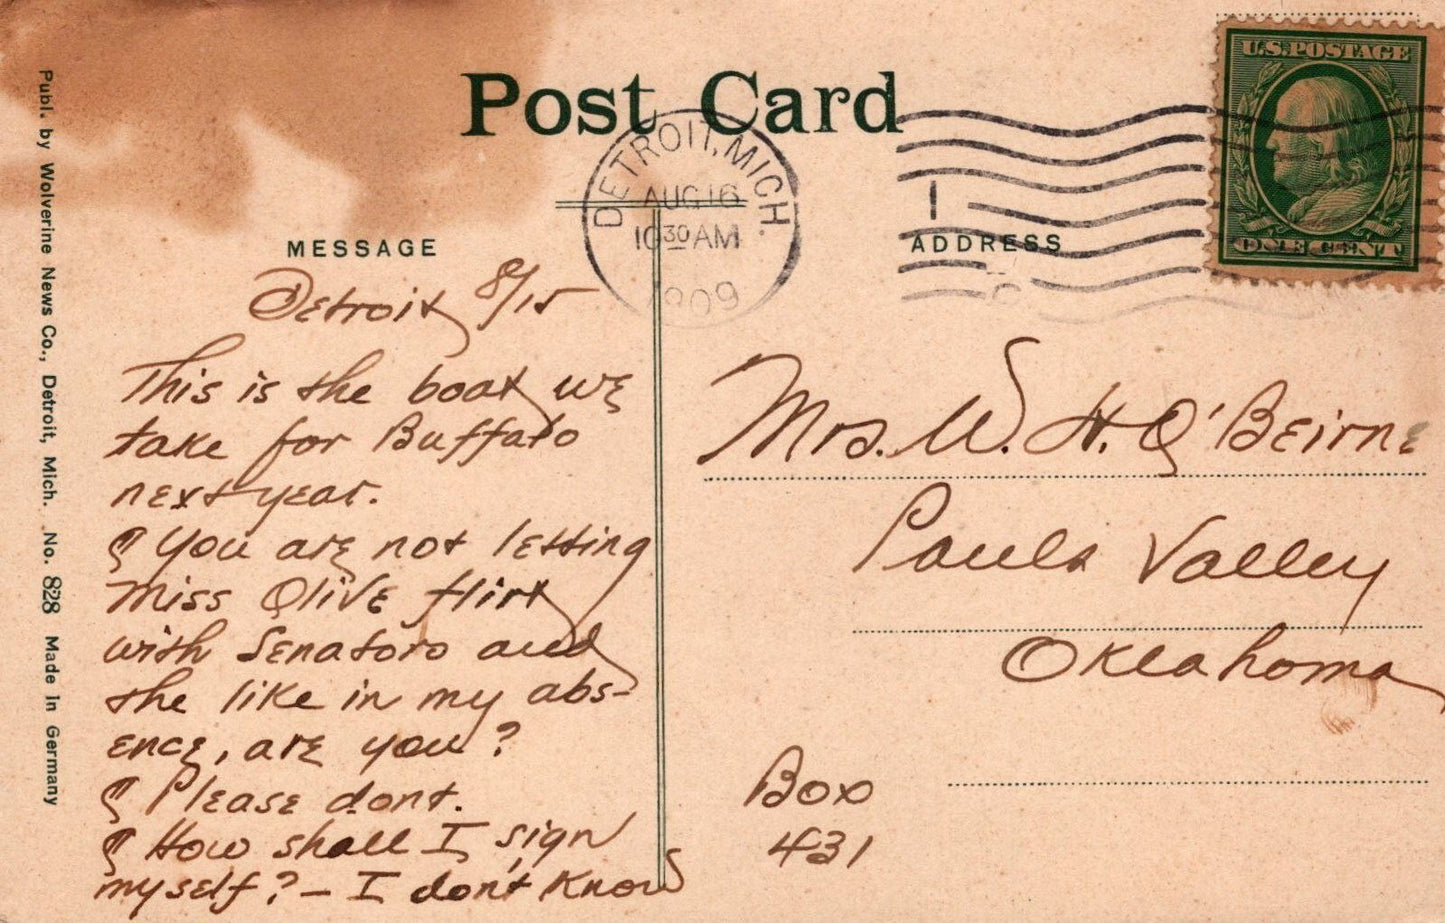 Post Card
U.S. POSTAGE
ONE CENT
DETROIT, MICH.
AUG 16
10 30 AM
1909
1
MESSAGE
ADDRESS
Publ. by Wolverine News Co., Detroit, Mich. No. 828 Made In Germany
Detroit 8/15
This is the boat we
take for Buffalo
next year.
¶ You are not letting
Miss Olive flirt
with Senators and
the like in my abs-
ence, are you?
¶ Please dont.
¶ How shall I sign
myself? – I don't know
Mrs. W. H. O'Beirne
Pauls Valley
Oklahoma
Box
431